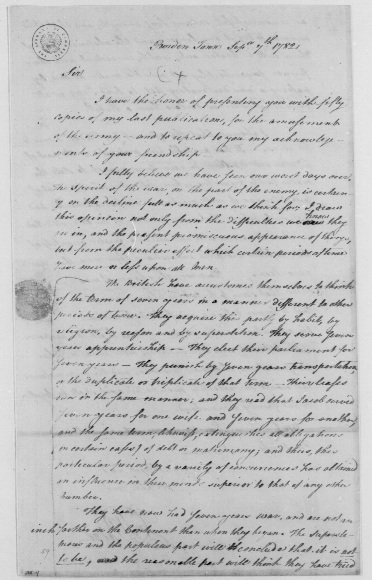 Borden Town Sepr 7th 1782
Sir
I have the honor of presenting you with fifty
copies of my last publications, for the amusement
of the army — and to repeat to you my acknowledg-
ments of your friendship
I fully believe we have seen our worst days over.
The spirit of the war, on the part of the enemy, is certain-
ly on the decline full as much as we think for. I draw
this opinion not only from the difficulties we know they
are in, and the present promiscuous appearance of things,
but from the peculiar effect which certain periods of time
have more or less upon all men.
The British have accustomed themselves to think
of the term of seven years in a manner different to other
periods of time. They acquire this partly by habit, by
religion, by reason and by superstition. They serve seven
years apprenticeship — They elect their parliament for
seven years — They punish by seven years transportation,
or the duplicate or triplicate of that term — Their leases
run in the same manner; and they read that Jacob served
seven years for one wife and seven years for another,
and the same term, likewise, extinguishes all obligations
in certain cases of debt or matrimony; and thus, this
particular period, by a variety of concurrences has obtained
an influence in their minds superior to that of any other
number.
They have now had seven years war, and are not an
inch farther on the Continent than when they began. The supersti-
tious and the populous part will conclude that it is not
to be, and the reasonable part will think they have tried